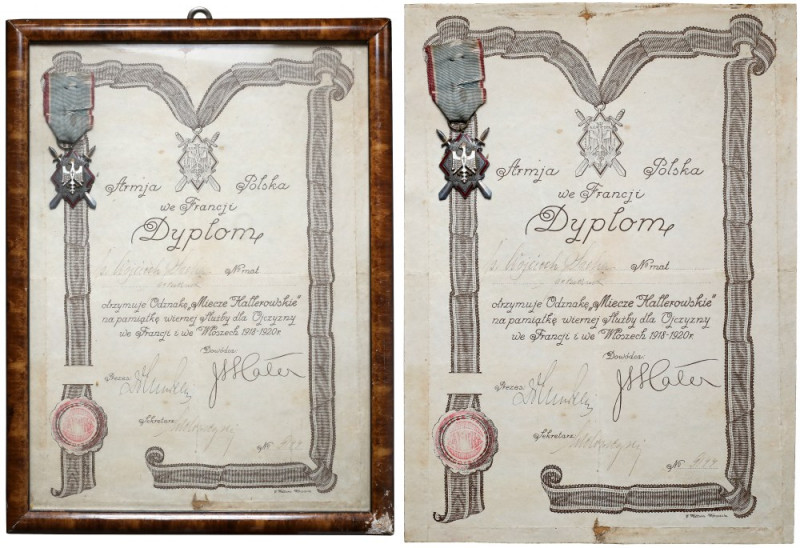 Armja Polska
we Francji
Dyplom
Wojciech
№ mat
otrzymuje Odznakę „Miecze Hallerowskie"
na pamiątkę wiernej służby dla Ojczyzny
we Francji i we Włoszech 1918-1920r.
Dowódca:
Prezes:
Sekretarz:
№
Armja Polska
we Francji
Dyplom
Wojciech
№ mat
otrzymuje Odznakę „Miecze Hallerowskie"
na pamiątkę wiernej służby dla Ojczyzny
we Francji i we Włoszech 1918-1920r.
Dowódca:
Prezes:
Sekretarz:
№